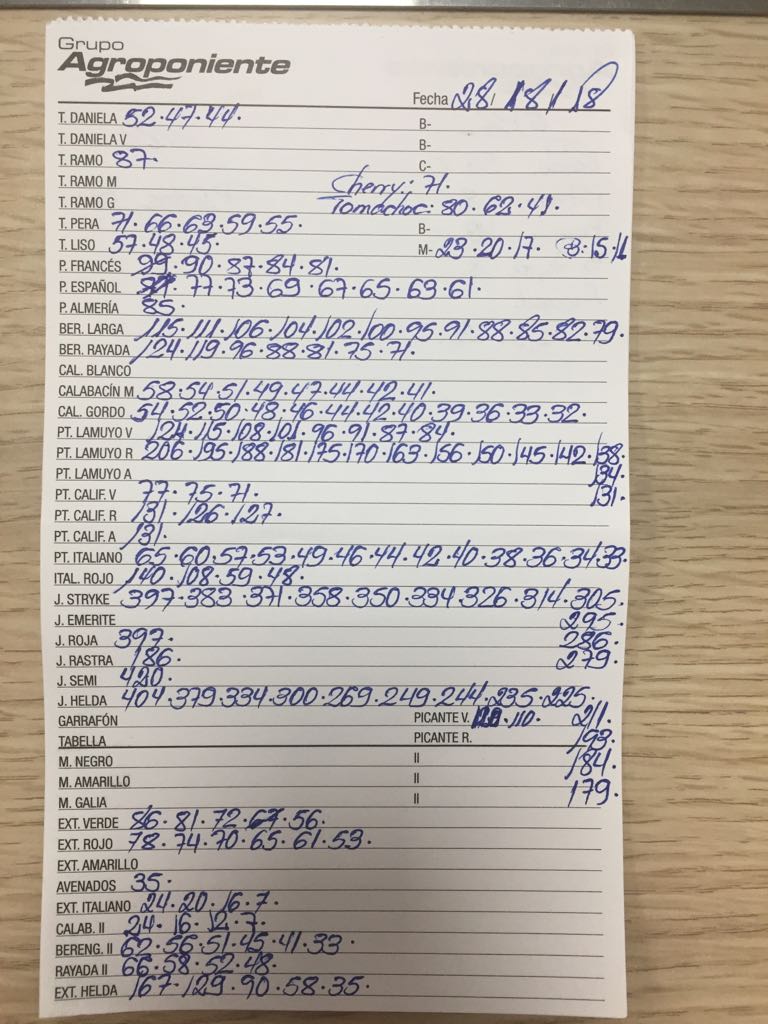 Grupo
Agroponiente
Fecha 28/ 18/ 18
T. DANIELA 52.47.44. B-
T. DANIELA V B-
T. RAMO 87. C-
T. RAMO M Cherry: 71.
T. RAMO G Tomachoc: 80.62.41.
T. PERA 71.66.63.59.55. B-
T. LISO 57.48.45. M- 23.20.17. B:15.11
P. FRANCÉS 99.90.87.84.81.
P. ESPAÑOL 77.73.69.67.65.63.61.
P. ALMERÍA 85.
BER. LARGA 115.111.106.104.102.100.95.91.88.85.82.79.
BER. RAYADA 124.119.96.88.81.75.71.
CAL. BLANCO
CALABACÍN M 58.54.51.49.47.44.42.41.
CAL. GORDO 54.52.50.48.46.44.42.40.39.36.33.32.
PT. LAMUYO V 124.115.108.101.96.91.87.84.
PT. LAMUYO R 206.195.188.181.175.170.163.156.150.145.142.138.
PT. LAMUYO A 134.
PT. CALIF. V 77.75.71. 131.
PT. CALIF. R 131.126.127.
PT. CALIF. A 131.
PT. ITALIANO 65.60.57.53.49.46.44.42.40.38.36.34.33.
ITAL. ROJO 140.108.59.48.
J. STRYKE 397.383.371.358.350.334.326.314.305.
J. EMERITE 295.
J. ROJA 397. 286.
J. RASTRA 186. 279.
J. SEMI 420.
J. HELDA 404.379.334.300.269.249.244.235.225.
GARRAFÓN PICANTE V. 110. 211.
TABELLA PICANTE R. 193.
M. NEGRO II 184.
M. AMARILLO II
M. GALIA II 179.
EXT. VERDE 86.81.72.67.56.
EXT. ROJO 78.74.70.65.61.53.
EXT. AMARILLO
AVENADOS 35.
EXT. ITALIANO 24.20.16.7.
CALAB. II 24.16.12.7.
BERENG. II 62.56.51.45.41.33.
RAYADA II 66.58.52.48.
EXT. HELDA 167.129.90.58.35.